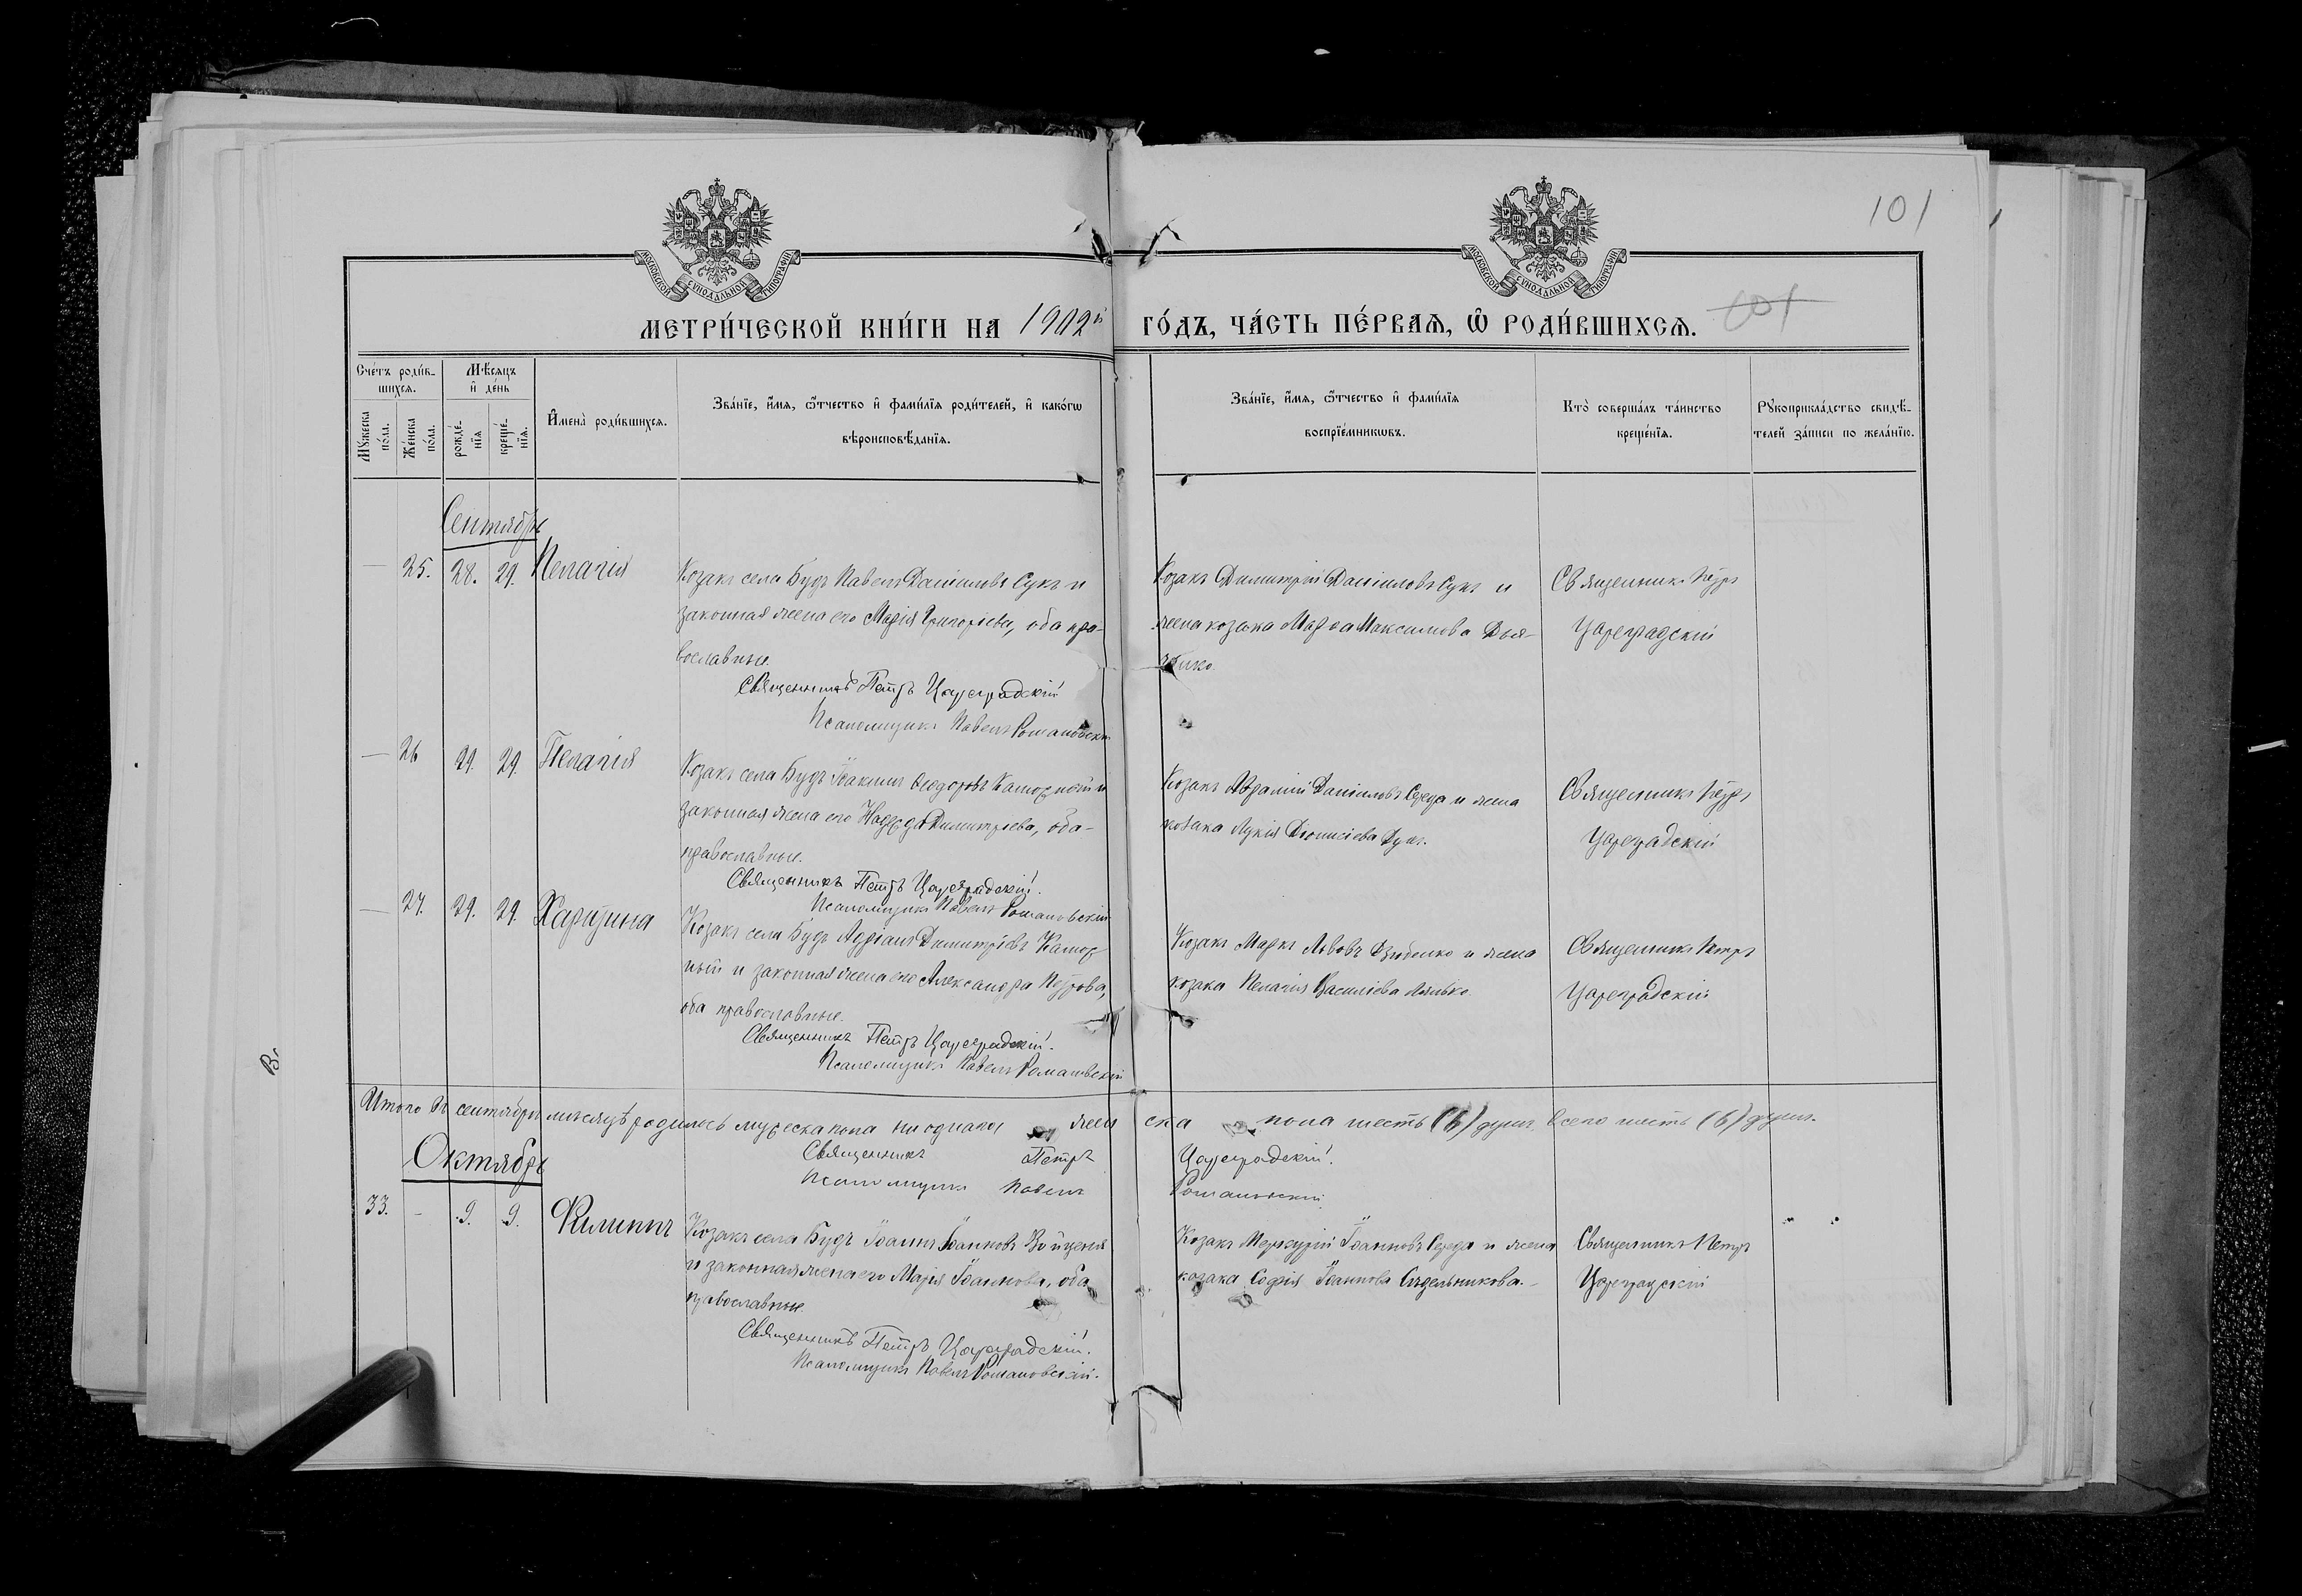 101
МОСКОВСКОЙ СУНОДАЛЬНОЙ ТИПОГРАФІИ
МОСКОВСКОЙ СУНОДАЛЬНОЙ ТИПОГРАФІИ
МЕТРИ́ЧЕСКОЙ КНИ́ГИ НА 1902й ГО́ДЪ, ЧА́СТЬ ПЕ́РВАѦ, Ѽ РОДИ́ВШИХСѦ.
101
Сче́тъ роди́в-
шихсѧ.
Мꙋжеска по́ла.
Же́нска по́ла.
Мѣ́сѧцъ
и҆ де́нь
рожде́-
нїѧ
креще́-
нїѧ.
И҆мена̀ роди́вшихсѧ.
Зва́нїе, и҆́мѧ, ѻ҆́тчество и҆ фами́лїѧ роди́телей, и҆ како́гѡ
вѣроисповѣ́данїѧ.
Зва́нїе, и҆́мѧ, ѻ҆́тчество и҆ фами́лїѧ
воспрїе́мникѡвъ.
Кто̀ соверша́лъ та́инство
креще́нїѧ.
Рꙋкоприкла́дство свидѣ́-
телей за́писи по жела́нїю.
Сентябрь
— 25. 28. 29. Пелагія
Козакъ села Будъ Павелъ Даніиловъ Сукъ и
законная жена его Марія Григоріева, оба пра-
вославные.
Священникъ Петръ Цареградскій
Псаломщикъ Павелъ Романовскій
Козакъ Димитрій Даніиловъ Сукъ и
жена козака Марѳа Максимова Дья-
Священникъ Петръ
Цареградскій
— 26 29. 29. Пелагія
Козакъ села Будъ Іоакимъ Ѳеодоровъ Каторный и
законная жена его Надежда Димитріева, оба
православные.
Священникъ Петръ Цареградскій.
Псаломщикъ Павелъ Романовскій
Козакъ Даніиловъ Середа и жена
козака Лукія Діонисіева
Священникъ Петръ
Цареградскій
— 27. 29. 29. Харитина
Козакъ села Будъ Адріанъ Димитріевъ Катор-
ный и законная жена его Александра Петрова,
оба православные.
Священникъ Петръ Цареградскій.
Псаломщикъ Павелъ Романовскій
Козакъ Маркъ Львовъ Дзюбенко и жена
козака Пелагія Василіева Лялько.
Священникъ Петръ
Цареградскій
Итого въ сентябрѣ мѣсяцѣ родилось мужеска пола ни одного женска пола шесть (6) душъ, всего шесть (6) душъ.
Священникъ Петръ Цареградскій.
Псаломщикъ Павелъ Романовскій
Октябрь
33. - 9. 9. Филиппъ
Козакъ села Будъ Іоаннъ Іоанновъ Войценя
и законная жена его Марія Іоаннова, оба
православные.
Священникъ Петръ Цареградскій.
Псаломщикъ Павелъ Романовскій.
Козакъ Меркурій Іоанновъ Середа и жена
козака Софія Іоаннова Сѣдельникова.
Священникъ Петръ
Цареградскій